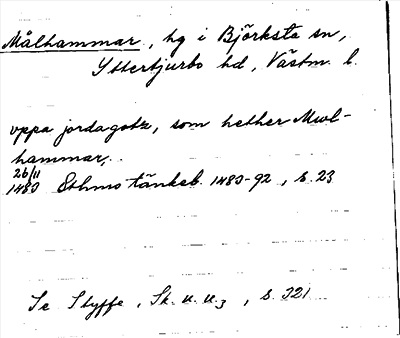 Målhammar, hg i Björksta sn,
Yttertjurbo hd, Västm. l.
vppa jordagotz, som hether Mwl-
hammar,.
26/11
1483 Sthms tänkeb. 1483-92, s. 23
Se Styffe, Sk. u. u.3, s. 321